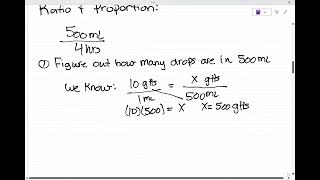 Ratio & proportion:
500mL
4 hrs
① Figure out how many drops are in 500mL
We know: 10 gtts = X gtts
1mL 500mL
(10)(500) = X X=500gtts